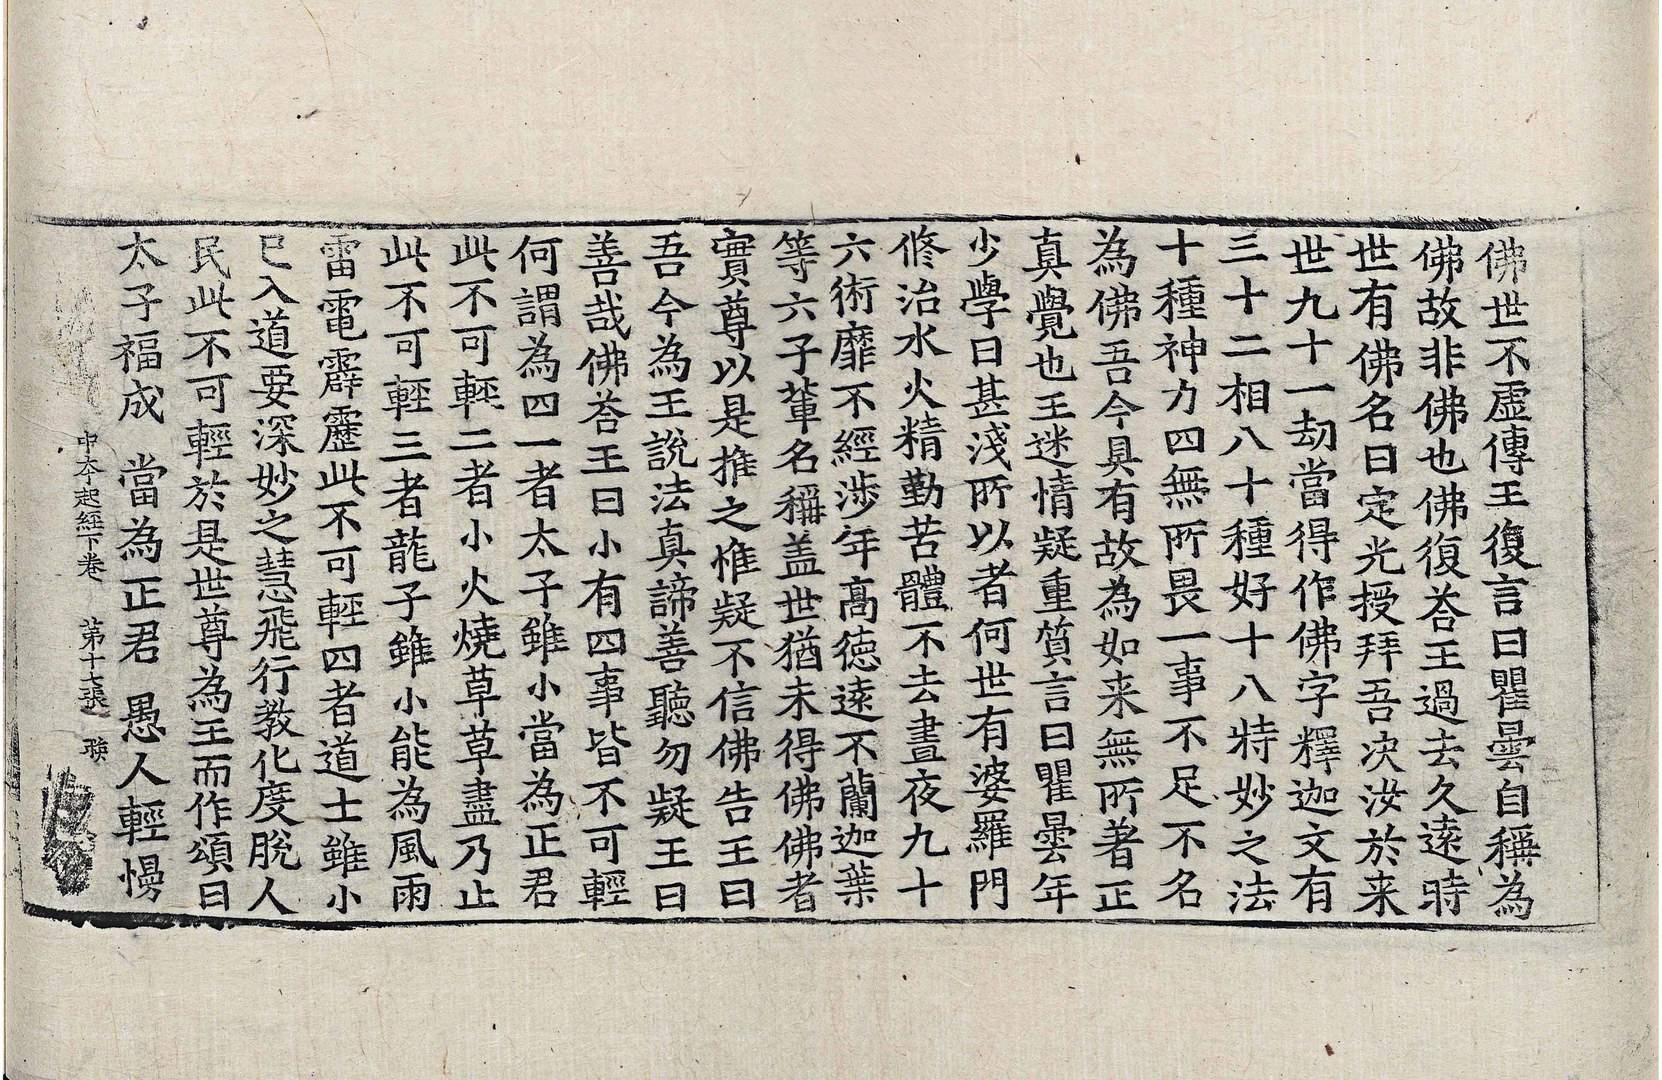 佛世不虛傳王復言曰瞿曇自稱為
佛故非佛也佛復荅王過去久遠時
世有佛名曰定光授拜吾次汝於来
世九十一劫當得作佛字釋迦文有
三十二相八十種好十八特妙之法
十種神力四無所畏一事不足不名
為佛吾今具有故為如来無所著正
真覺也王迷情疑重質言曰瞿曇年
少學日甚淺所以者何世有婆羅門
修治水火精勤苦體不去晝夜九十
六術靡不經涉年高德遠不蘭迦葉
等六子輩名稱盖世猶未得佛佛者
實尊以是推之惟疑不信佛告王曰
吾今為王說法真諦善聽勿疑王曰
善哉佛荅王曰小有四事皆不可輕
何謂為四一者太子雖小當為正君
此不可輕二者小火燒草草盡乃止
此不可輕三者龍子雖小能為風雨
雷電霹靂此不可輕四者道士雖小
已入道要深妙之慧飛行教化度脫人
民此不可輕於是世尊為王而作頌曰
太子福成 當為正君 愚人輕慢
中夲起經下卷 第十七張 㻶